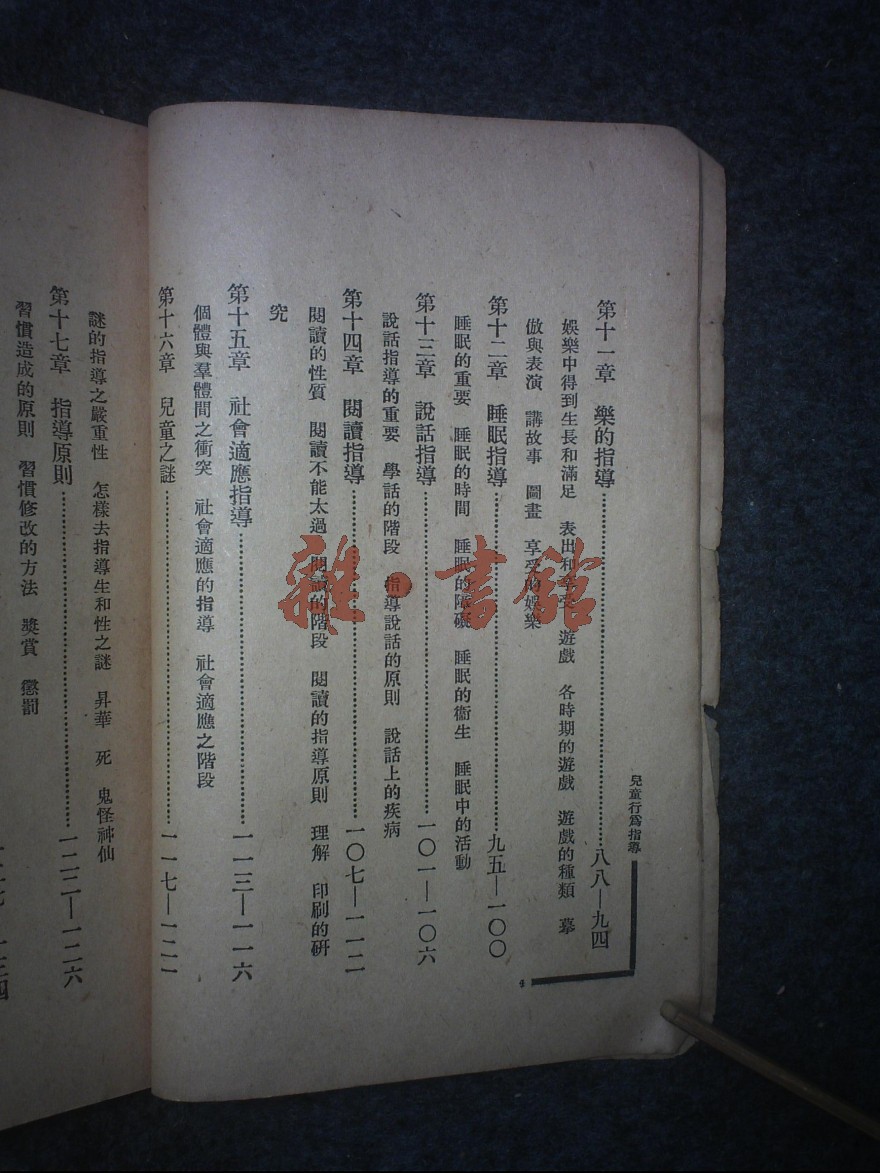 兒童行爲指導
4
第十一章　樂的指導……………八八—九四
娛樂中得到生長和滿足　表出和享受　遊戲　各時期的遊戲　遊戲的種類　摹
倣與表演　講故事　圖畫　享受的娛樂
第十二章　睡眠指導……………九五—一〇〇
睡眠的重要　睡眠的時間　睡眠的障礙　睡眠的衞生　睡眠中的活動
第十三章　說話指導……………一〇一—一〇六
說話指導的重要　學話的階段　指導說話的原則　說話上的疾病
第十四章　閱讀指導……………一〇七—一一二
閱讀的性質　閱讀不能太過　閱讀的階段　閱讀的指導原則　理解　印刷的研
究
第十五章　社會適應指導……………一一三—一一六
個體與羣體間之衝突　社會適應的指導　社會適應之階段
第十六章　兒童之謎……………一一七—一二一
謎的指導之嚴重性　怎樣去指導生和性之謎　昇華　死　鬼怪神仙
第十七章　指導原則……………一二二—一二六
習慣造成的原則　習慣修改的方法　獎賞　懲罰
雜·書館